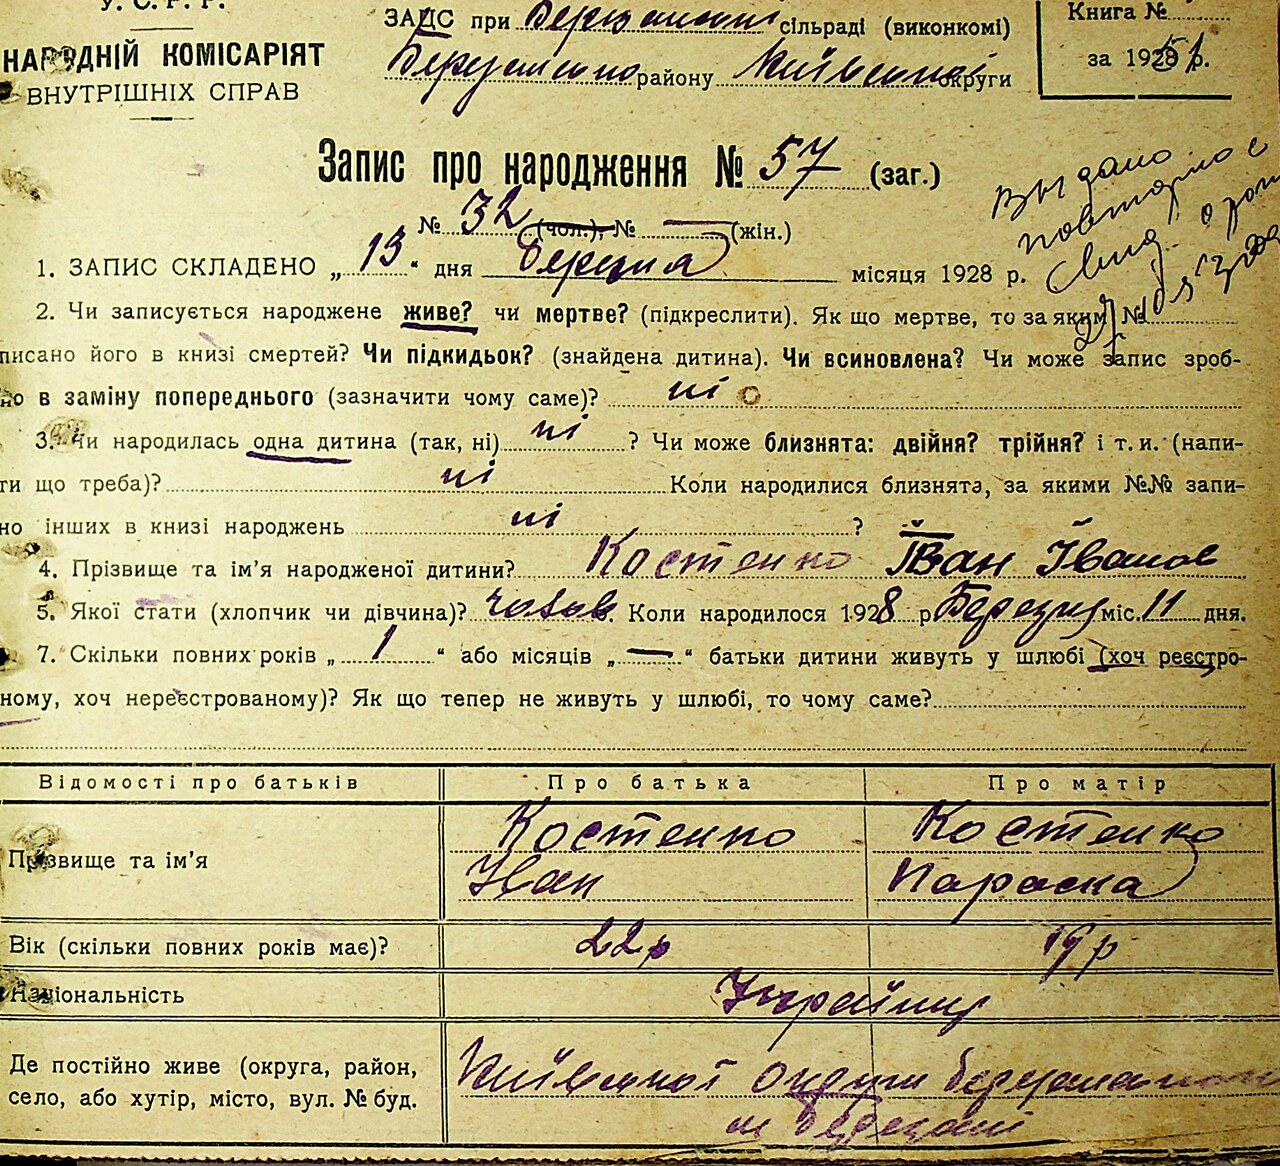 У. С. Р. Р.
НАРОДНІЙ КОМІСАРІЯТ
ВНУТРІШНІХ СПРАВ
ЗАЦС при сільраді (виконкомі)
району Київської округи
Книга №
за 1928 р.
Запис про народження № 57 (заг.)
№ 32 (чол.), № — (жін.)
Выдано
повторное
1. ЗАПИС СКЛАДЕНО „ 13 “ дня березня місяця 1928 р.
2. Чи записується народжене живе? чи мертве? (підкреслити). Як що мертве, то за яким №
писано його в книзі смертей? Чи підкидьок? (знайдена дитина). Чи всиновлена? Чи може запис зроб-
но в заміну попереднього (зазначити чому саме)? ні
3. Чи народилась одна дитина (так, ні) ні ? Чи може близнята: двійня? трійня? і т. и. (напи-
ти що треба)? ні Коли народилися близнята, за якими №№ запи-
но інших в книзі народжень ні ?
4. Прізвище та ім’я народженої дитини? Костенко Іван Іванов
5. Якої стати (хлопчик чи дівчина)? чолов. Коли народилося 1928 р. Березня міс. 11 дня.
7. Скільки повних років „ 1 “ або місяців „ — “ батьки дитини живуть у шлюбі (хоч реєстро-
ному, хоч нереєстрованому)? Як що тепер не живуть у шлюбі, то чому саме?
Відомості про батьків Про батька Про матір
Прізвище та ім’я Костенко Іван Костенко Параска
Вік (скільки повних років має)? 22 р 19 р
Національність Українці
Де постійно живе (округа, район, Київської округи
село, або хутір, місто, вул. № буд. м Березані